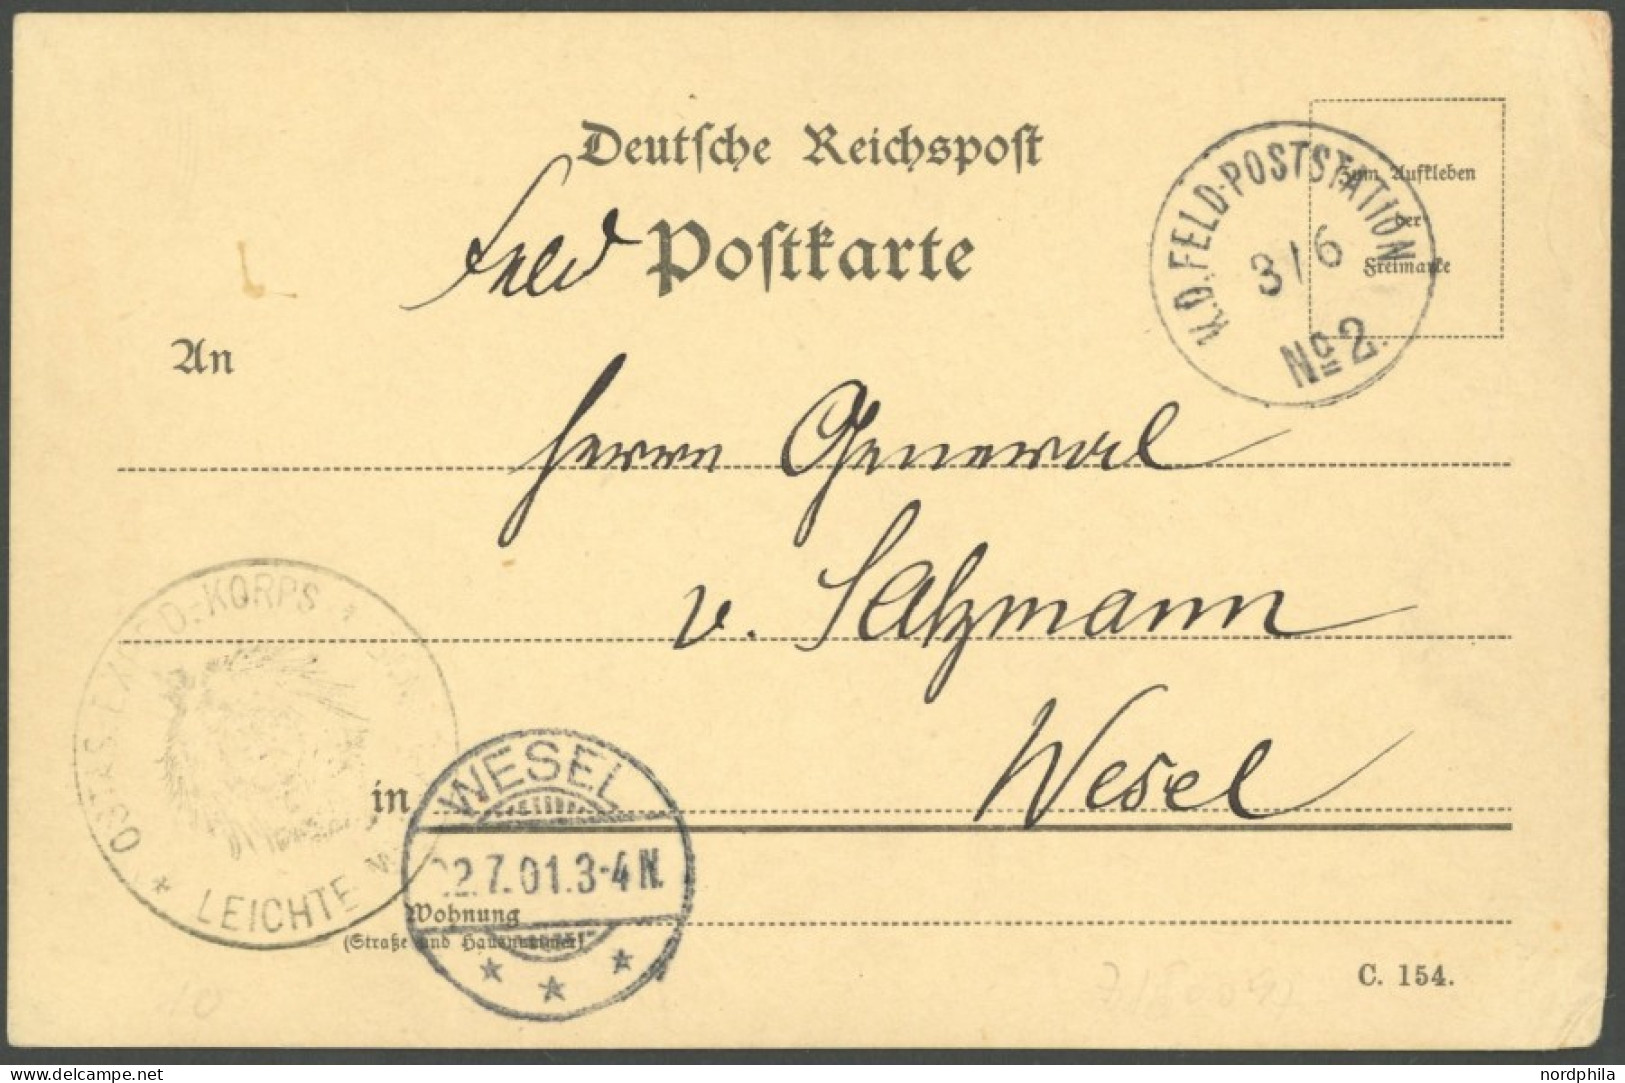 Deutsche Reichspost
Feld Postkarte
K.D.FELD-POSTSTATION
3/6
No 2.
Zum Aufkleben
der
Freimarke
An
Herrn General
v. Salzmann
Wesel
OSTAS. EXPED.-KORPS
LEICHTE
in
WESEL
22.7.01.3-4N.
Wohnung
(Straße und Hausnummer)
C. 154.
www.delcampe.net
nordphila